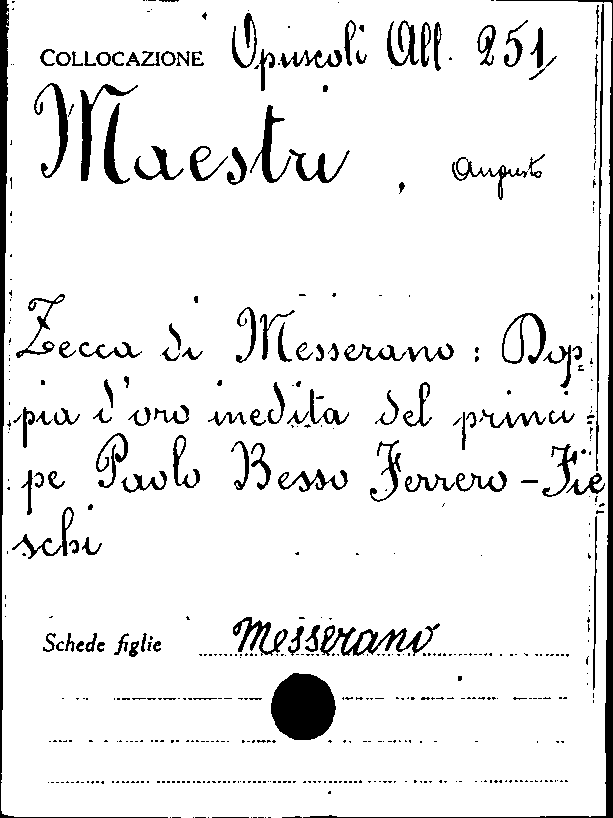 COLLOCAZIONE Opuscoli All. 251
Maestri, Augusto
Zecca di Messerano: Dop=
pia d'oro inedita del princi=
pe Paolo Besso Ferrero-Fie=
schi
Schede figlie Messerano